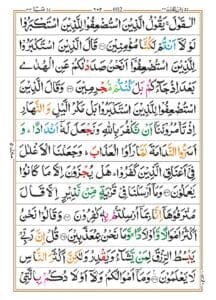 الْقَوْلَ ۚ يَقُولُ الَّذِينَ اسْتُضْعِفُوا لِلَّذِينَ اسْتَكْبَرُوا
لَوْلَا أَنْتُمْ لَكُنَّا مُؤْمِنِينَ ۝ قَالَ الَّذِينَ اسْتَكْبَرُوا
لِلَّذِينَ اسْتُضْعِفُوا أَنَحْنُ صَدَدْنٰكُمْ عَنِ الْهُدٰى
بَعْدَ إِذْ جَاءَكُمْ بَلْ كُنْتُمْ مُجْرِمِينَ ۝ وَقَالَ الَّذِينَ
اسْتُضْعِفُوا لِلَّذِينَ اسْتَكْبَرُوا بَلْ مَكْرُ اللَّيْلِ وَالنَّهَارِ
إِذْ تَأْمُرُونَنَا أَنْ نَكْفُرَ بِاللَّهِ وَنَجْعَلَ لَهُ أَنْدَادًا ۚ وَ
أَسَرُّوا النَّدَامَةَ لَمَّا رَأَوُا الْعَذَابَ ۚ وَجَعَلْنَا الْأَغْلٰلَ
فِي أَعْنَاقِ الَّذِينَ كَفَرُوا ۚ هَلْ يُجْزَوْنَ إِلَّا مَا كَانُوا
يَعْمَلُونَ ۝ وَمَا أَرْسَلْنَا فِي قَرْيَةٍ مِنْ نَذِيرٍ إِلَّا قَالَ
مُتْرَفُوهَا إِنَّا بِمَا أُرْسِلْتُمْ بِهِ كٰفِرُونَ ۝ وَقَالُوا نَحْنُ
أَكْثَرُ أَمْوَالًا وَأَوْلَادًا وَمَا نَحْنُ بِمُعَذَّبِينَ ۝ قُلْ إِنَّ رَبِّي
يَبْسُطُ الرِّزْقَ لِمَنْ يَشَاءُ وَيَقْدِرُ وَلٰكِنَّ أَكْثَرَ النَّاسِ
لَا يَعْلَمُونَ ۝ وَمَا أَمْوَالُكُمْ وَلَا أَوْلَادُكُمْ بِالَّتِي